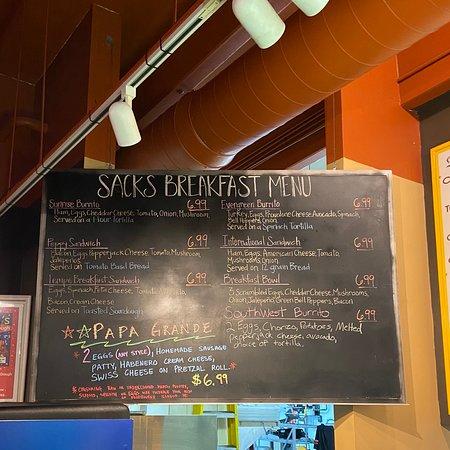 SACKS BREAKFAST MENU
Sunrise Burrito 6.99
Ham, Eggs, Cheddar Cheese, Tomato, Onion, Mushroom
Served on a Flour Tortilla
Poppy Sandwich 6.99
Bacon, Eggs, Pepperjack Cheese, Tomato, Mushroom,
Jalapeños
Served on Tomato Basil Bread
Breakfast Sandwich 6.99
Eggs, Spinach, Feta Cheese, Tomato, Mushroom,
Bacon, Cream Cheese
Served on Toasted Sourdough
PAPA GRANDE
* 2 EGGS (ANY STYLE), HOMEMADE SAUSAGE
PATTY, HABENERO CREAM CHEESE,
SWISS CHEESE ON PRETZEL ROLL *
$6.99
Evergreen Burrito 6.99
Turkey, Eggs, Provolone Cheese, Avocado, Spinach,
Bell Peppers, Onion
Served on a Spinach Tortilla
International Sandwich 6.99
Ham, Eggs, American Cheese, Tomato,
Mushrooms, Onion
Served on 12 grain Bread
Breakfast Bowl 6.99
3 Scrambled Eggs, Cheddar Cheese, Mushrooms,
Onion, Jalapeño, Green Bell Peppers, Bacon
SouthWest Burrito 6.99
2 Eggs, Chorizo, Potatoes, Melted
Pepperjack cheese, avocado,
choice of tortilla.